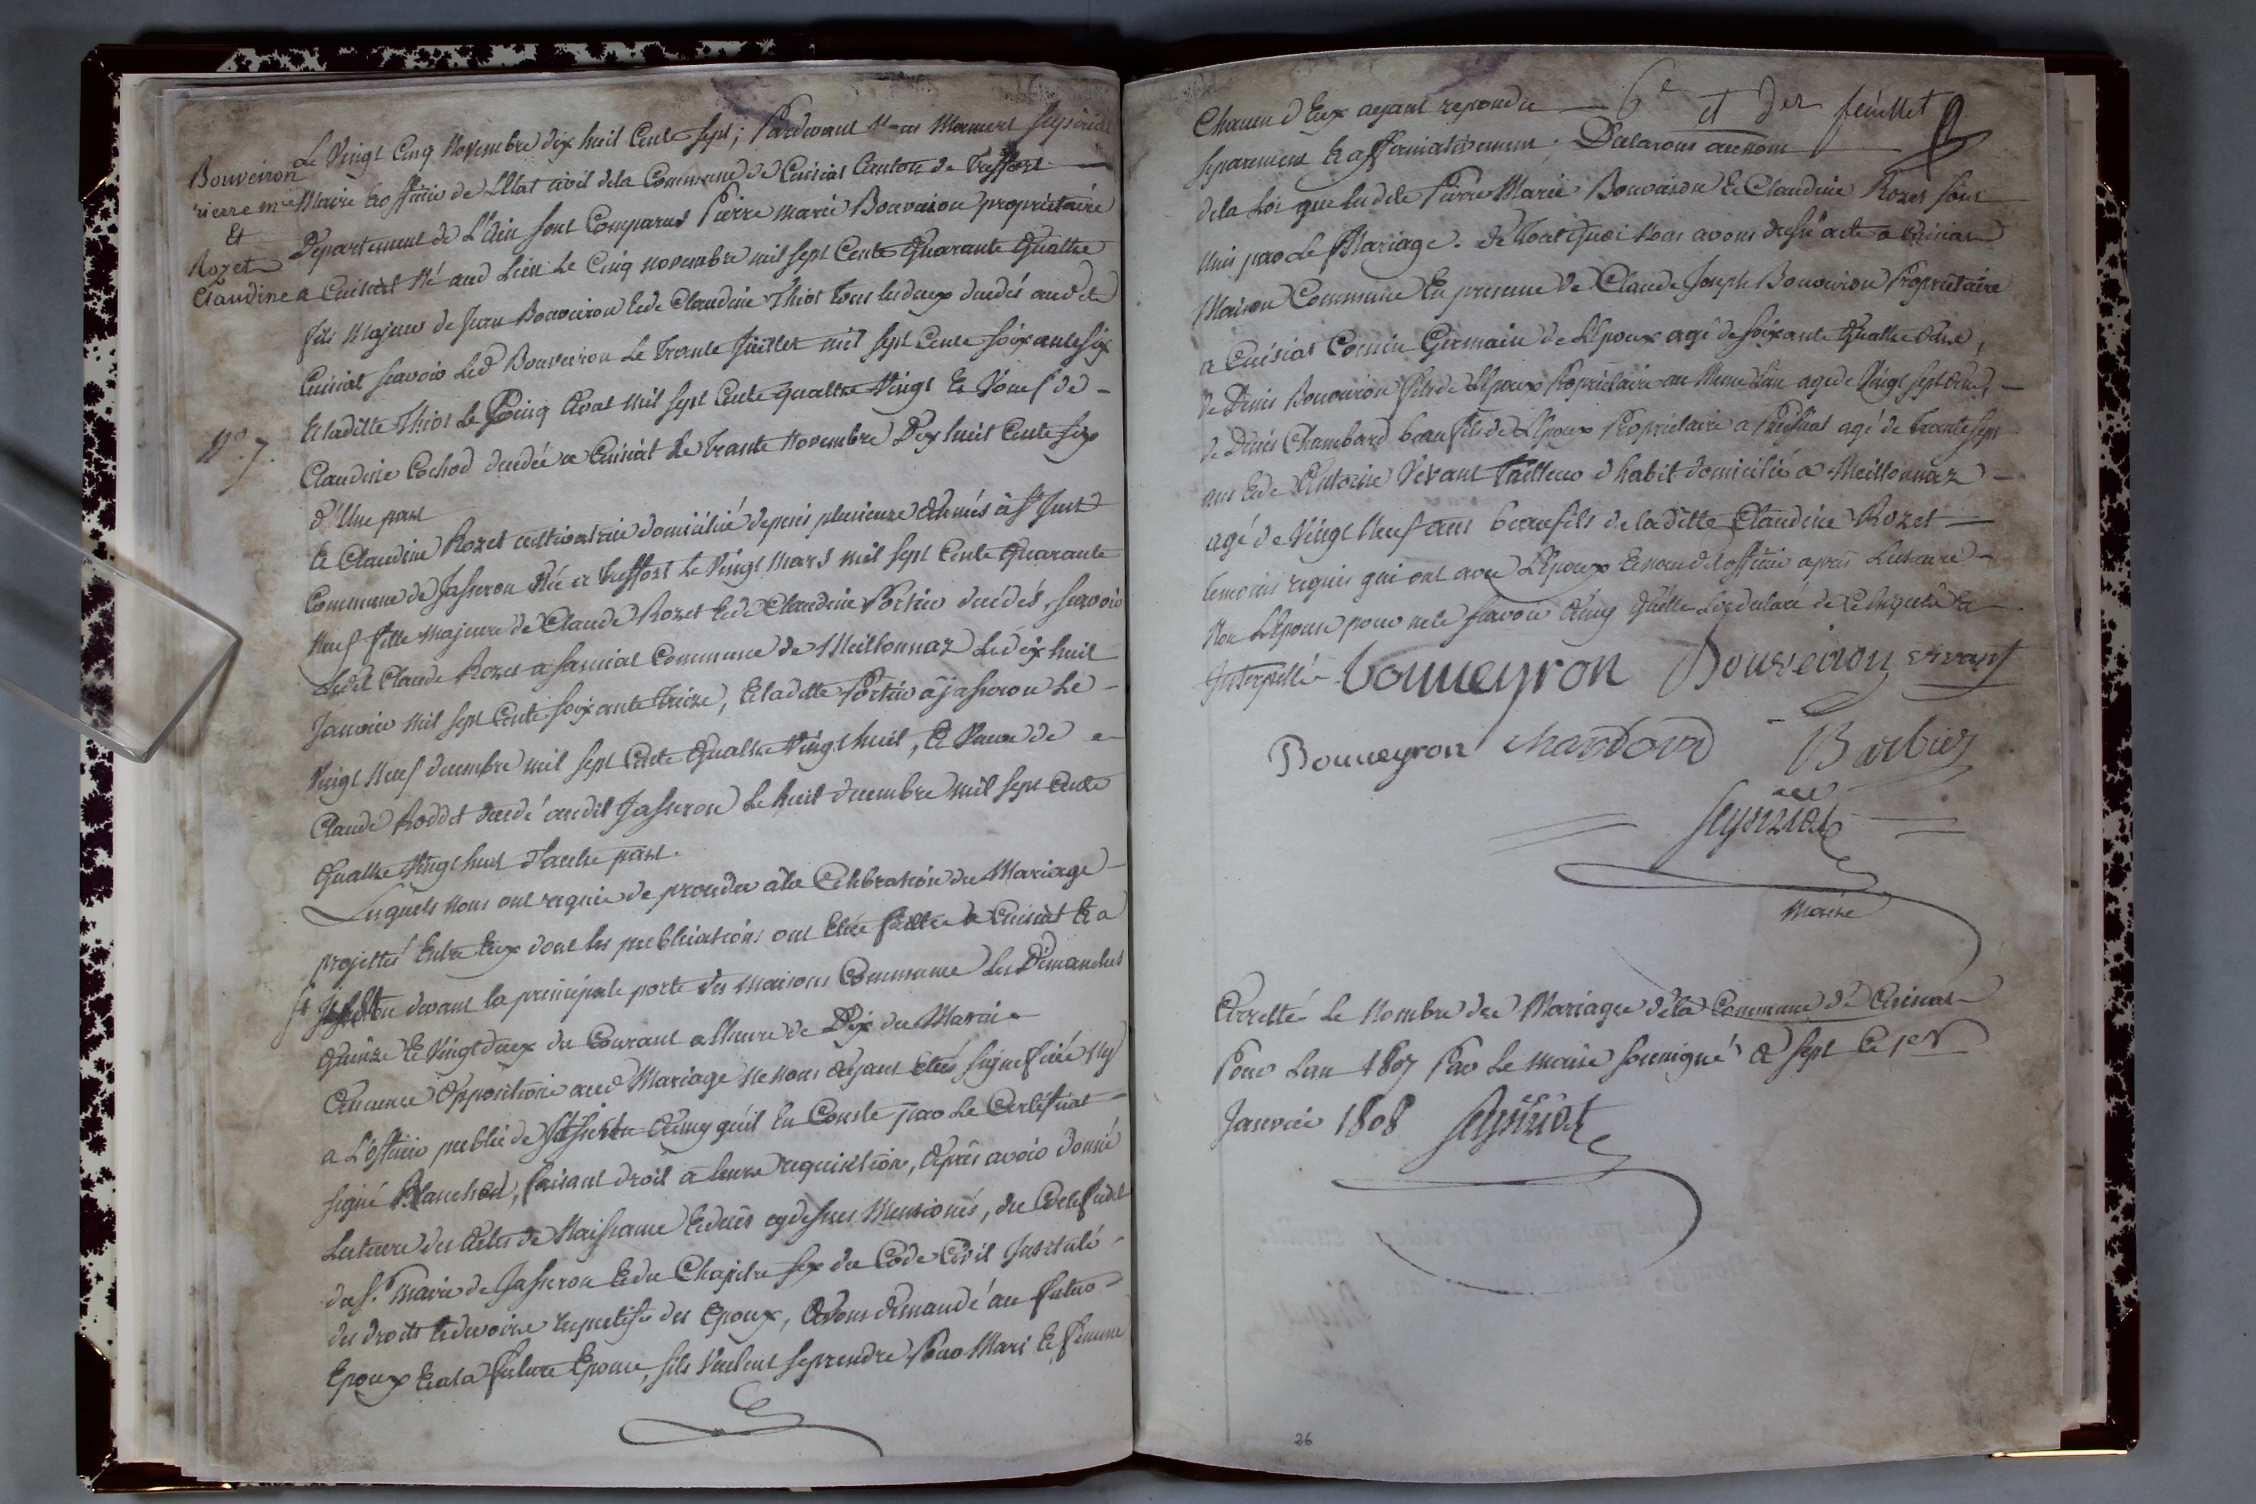 Bouveiron
pierre mie
Et
Rozet
Claudine
N.º 7.
Le Vingt Cinq Novembre dix huit Cents Sept; Pardevant Nous
Maire Et officier de L'Etat civil dela Commune de Cuisiat Canton de Treffort
Département de L'Ain sont Comparus Pierre Marie Bouveiron propriétaire
a Cuisiat Né aud Lieu Le Cinq novembre mil sept Cents Quarante Quattre
fils Majeur de Jean Bouveiron Et de Claudine Thiot Tous les deux décédés aud
Cuisiat scavoir Led Bouveiron Le Trente Juillet mil sept Cents soixante six
Et laditte Thiot Le Cinq Avat mil sept Cents quattre Vingt Et Veuf de
Claudine Cochod decedée a Cuisiat Le trante novembre Dix huit Cents six
d'Une part
Et Claudine Rozet cultivatrice domiciliée depuis plusieurs années à St Just
Commune de Jasseron Née a Treffort Le Vingt Mars mil sept Cents Quarante
Neuf fille Majeure de Claude Rozet Et de Claudine Portier decedés, scavoir
Ledit Claude Rozet a Sanciat Commune de Meillonnaz Le dix huit
Janvier mil sept Cents soixante Treize, Et ladette Portier à Jasseron Le
Vingt Neuf decembre mil sept Cents Quattre Vingt huit, Et Veuve de
Claude Roddet decedé audit Jasseron Le huit decembre mil sept Cents
Quattre Vingt huit d'autre part.
Lesquels nous ont requis de proceder à la Celebration du Mariage
projetté Entre Eux dont les publications ont Etée faittes a Cuisiat Et a
devant la principale porte des maisons Commune Les Dimanches
Quinze Et Vingt deux du Courant a lheure de Dix du Matin
Aucune Opposition aud Mariage Ne nous ayant Etés signefiée Ny
a L'officier public de Jasseron Ainsy qu'il En Conste par Le Certificat
signé Blanchod, faisant droit a leurs requisition, Après avoir donné
Lecture des Actes de Naissance Et décès cydessus Mentionés, du Certificat
du S.r Maire de Jasseron Et du Chapitre six du Code Civil Intitulé
des droits Et devoirs respectifs des Epoux, Avons demandé au futur
Epoux Et a la future Epouse, sils Veulent se prendre Pour Mari Et femme
6e et der feuillet
Chacun d'Eux ayant repondu
separement Et affirmativement; Declarons au nom
de la Loi que led Pierre Marie Bouveiron Et Claudine Rozet sont
Unis par Le Mariage. de Tout Quoi Nous avons dressé acte a Cuisiat
Maison Commune En presence de Claude Joseph Bouveiron Propriétaire
a Cuisiat Cousin Germain de L'Epoux agé de soixante Quattre ans,
de Denis Bouveiron fils de L'Epoux Propriétaire au Meme Lieu agé de Vingt sept ans,
de Denis Chambard beau fils de L'Epoux Propriétaire a Préssiat agé de trante sept
ans Et de Antoine Vevant Tailleur d'habit domicilié a Meillonnaz
agé de Vingt Neuf ans beaufils de ladette Claudine Rozet
temoins requis qui ont avec L'Epoux Et nous dit officier après Lecture
Non L'Epouse pour ne le scavoir Ainsy Qu'elle L'a declaré de Ce Enquise Et
Interpellé
Bouveyron Bouveiron vevant
Bouveyron Chambard Barbier
Maire
Arretté Le Nombre des Mariages de la Commune de Cuisiat
Pour Lan 1807 Par Le maire soussigné a sept Ce 1er
Janvier 1808
26